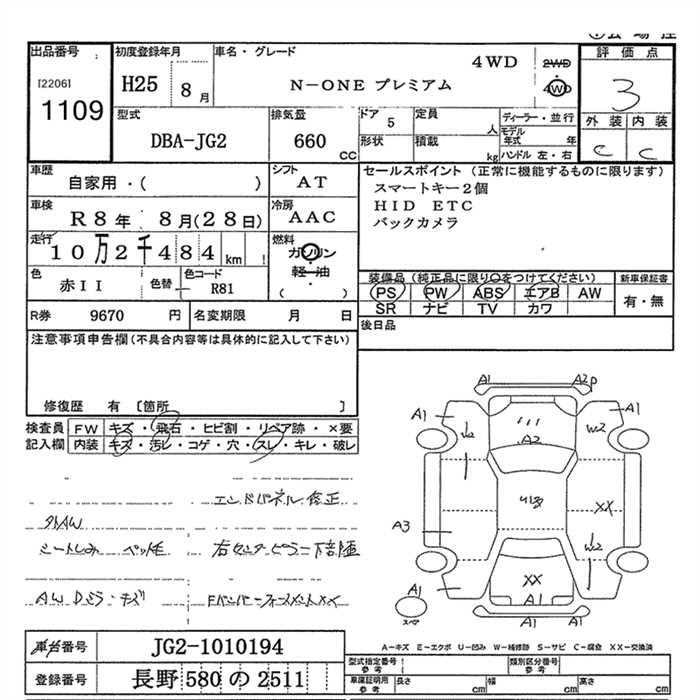 出品番号 初度登録年月 車名・グレード 4WD 2WD 評価点
[2206] H25 8月 N-ONE プレミアム 4WD 3
1109 型式 排気量 ドア 5 定員 人 ディーラー・並行 外装 内装
DBA-JG2 660 CC 形状 積載 kg モデル年式 年 ハンドル 左・右 C C
車歴 自家用・( ) シフト AT セールスポイント (正常に機能するものに限ります)
スマートキー2個
車検 R8年 8月(28日) 冷房 AAC HID ETC
バックカメラ
走行 10万2千484 km ! 燃料 ガソリン
軽・油
( )
色 赤II 色替 色コード R81
装備品 (純正品に限り○をつけてください) 新車保証書
PS PW ABS エアB AW 有・無
SR ナビ TV カワ
R券 9670 円 名変期限 月 日 後日品
注意事項申告欄(不具合内容等は具体的に記入して下さい)
修復歴 有 [箇所 ]
検査員 FW キズ・飛石・ヒビ割・リペア跡・×要
記入欄 内装 キズ・汚レ・コゲ・穴・スレ・キレ・破レ
エンドパネル修正
外AW
シートしみ
右センターピラー下部凹
AWDミラーキズ
Fバンパーフォースメント××
A1 A2P
A1 A1
W2 A2 W2
XX
A3
W2
A1 XX A1
A1
スペア
A-キズ E-エクボ U-凹み W-補修跡 S-サビ C-腐食 XX-交換済
車台番号 JG2-1010194 型式指定番号 参考 類別区分番号 参考
登録番号 長野 580 の 2511 車庫証明用 参考 長さ cm 幅 cm 高さ cm